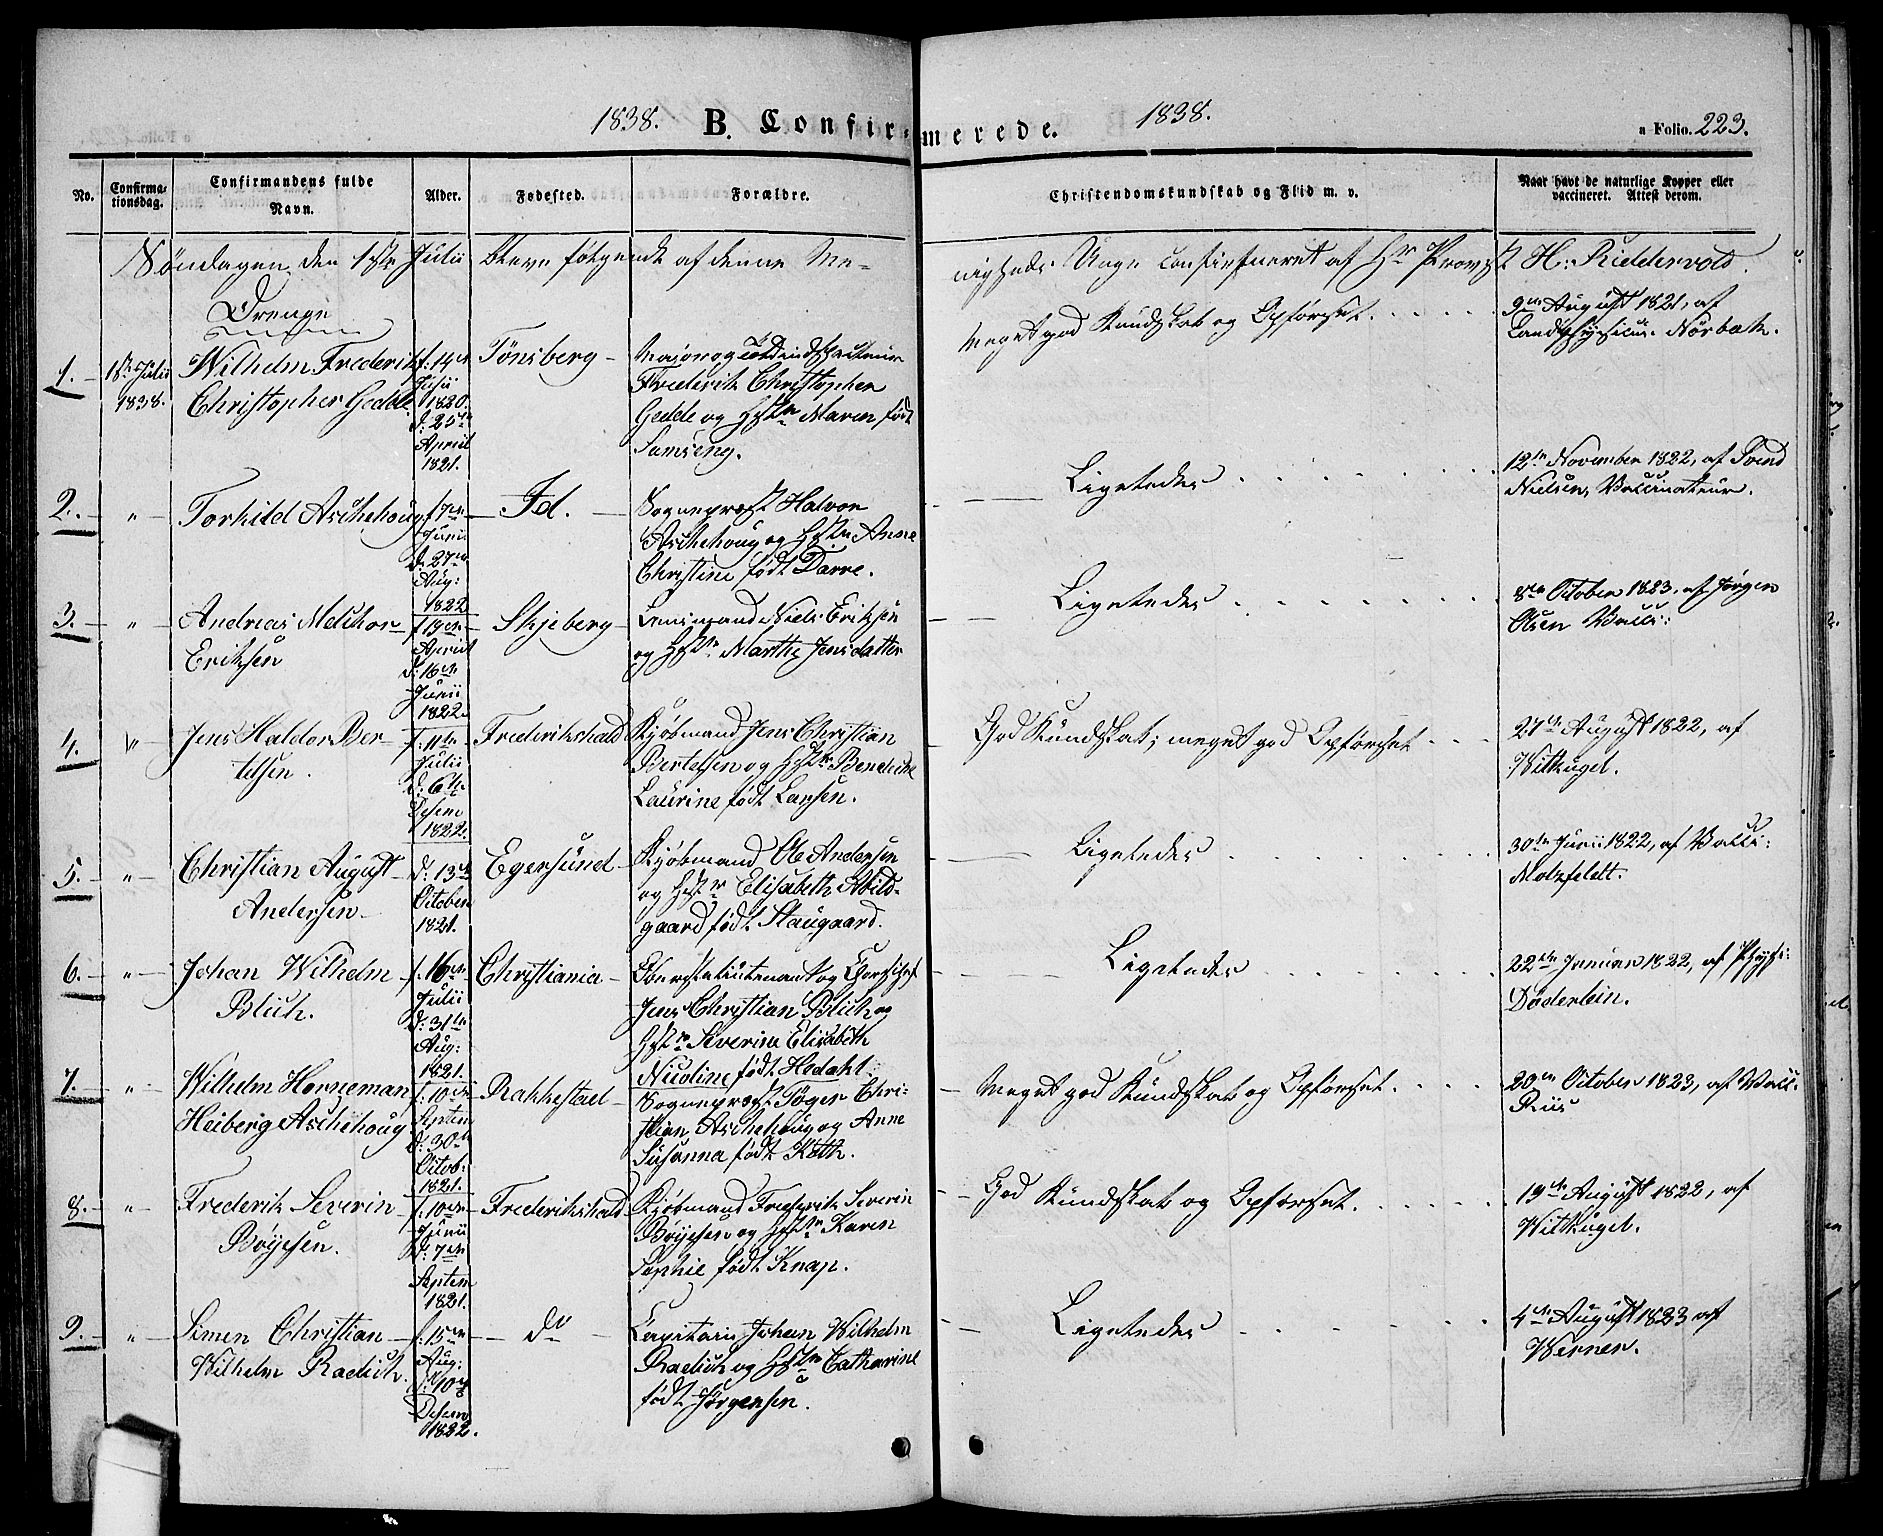 1838. B. Confirmerede. 1838. a Folio. 223.
No. Confirmationsdag. Confirmandens fulde Navn. Alder. Fødested. Forældre. Christendomskundskab og Flid m. v. Naar havt de naturlige Kopper eller vaccineret. Attest derom.
Søndagen den 1ste Julii bleve følgende af denne Menigheds Unge confirmeret af Hr Provst H: Riddervold.
Drenge
1. 1ste Julii 1838.
Wilhelm Frederik
Christopher Gedde
f. 14de
1820.
d: 25de
April
1821.
Tønsberg
Frederik Christopher
Gedde og Hstr Maren født
Samsing.
Meget god Kundskab og Opførsel.
9de August 1821, af
Landphysicus Nørbech.
2. "
Torkild Aschehoug
f 7de
Junii
d: 27de
Aug:
1822
Id.
Sognepræst Halvor
Aschehoug og Hstr Anne
Christine født Darre.
Ligeledes
12te November 1822, af Svend
Nielsen, Vaccinateur.
3. "
Andreas Melchior
Eriksen
f 19de
April
d: 16de
Junii
1822.
Skjeberg
Lensmand Niels Eriksen
og Hstr Marthe Jensdatter
Ligeledes
8de October 1823, af Jørgen
Olsen Vacci:
4. "
Jens Haldor Bertelsen.
f. 11te
Julii
d: 6te
Desem
1822.
Frederikshald
Kjøbmand Jens Christian
Bertelsen og Hstr Benedicte
Laurine født Larsen.
God Kundskab; meget god Opførsel
27de August 1822, af
Wittkugel.
5. "
Christian August
Andersen
d: 13de
October
1821.
Egersund
Kjøbmand Ole Andersen
og Hstr Elisabeth Abildgaard født Staugaard.
Ligeledes
30te Junii 1822, af Vacci:
Motzfeldt.
6. "
Johan Wilhelm
Blich.
f. 16de
Julii
d: 31te
Aug:
1821.
Christiania
Oberstlieutenant og
Jens Christian Blich og
Hstr Severine Elisabeth
Nicoline født Hedahl.
Ligeledes
22de Januar 1822, af Physi:
Døderlein.
7. "
Wilhelm Horneman
Heiberg Aschehoug
f. 10de
Septem
d: 30te
Octob:
1821.
Rakkestad
Sognepræst Tøger Christian Aschehoug og Anne
Susanna født Koth.
Meget god Kundskab og Opførsel.
20de October 1823, af Vacci:
Riis
8. "
Frederik Severin
Bøyesen.
f. 10de
Junii
d: 7de
Septem
1821.
Frederikshald
Kjøbmand Frederik Severin
Bøyesen og Hstr Karen
Sophie født Knap.
God Kundskab og Opførsel.
19de August 1822, af
Wittkugel.
9. "
Simen Christian
Wilhelm Radich.
f. 15de
Aug:
d: 10de
Desem
1822.
do
Capitain Johan Wilhelm
Radich og Hstr Catharine
født Jørgensen.
Ligeledes
4de August 1823 af
Werner.